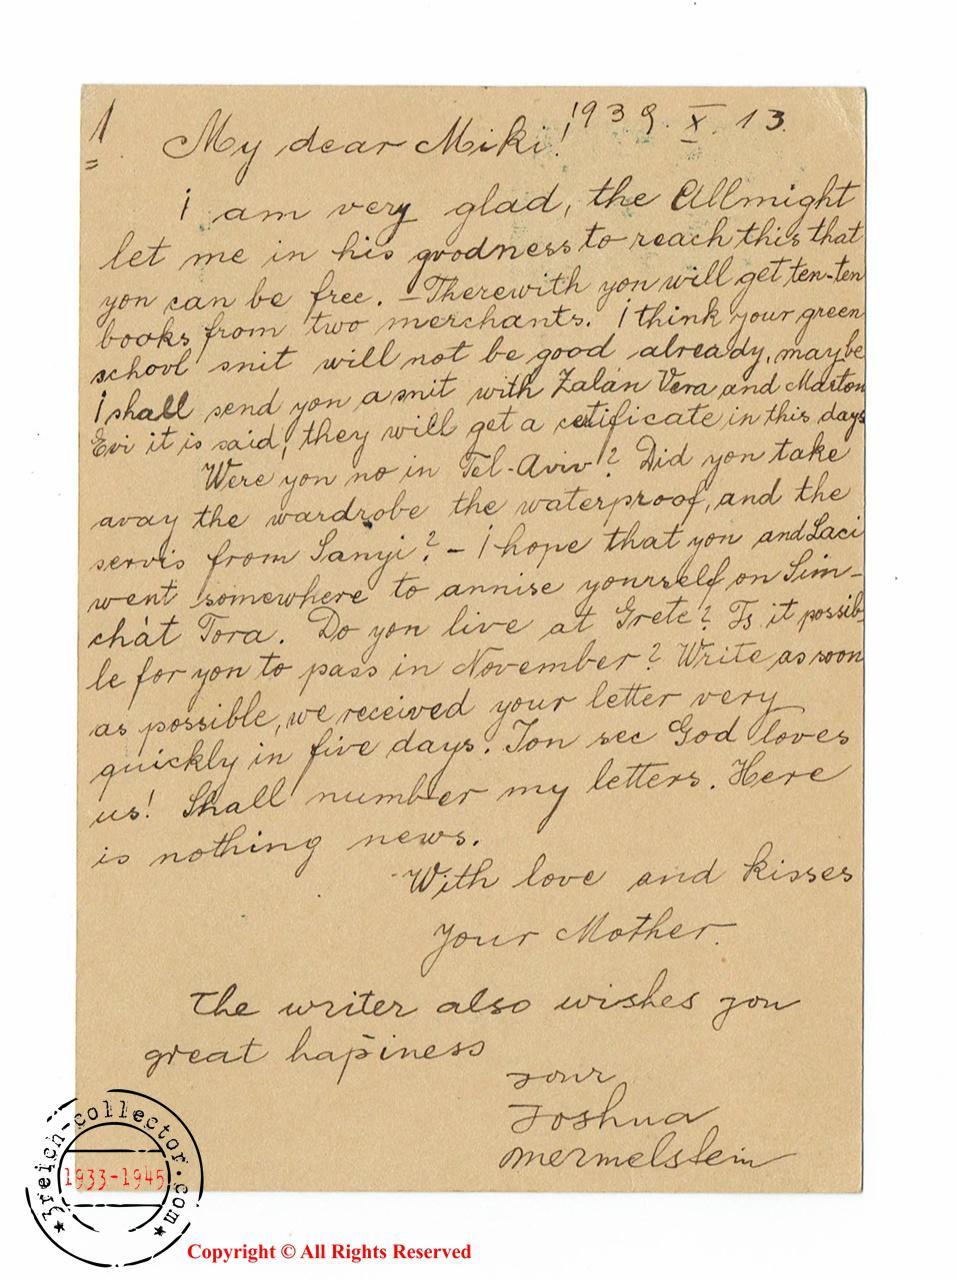 1
=
1939. X. 13.
My dear Miki!
i am very glad, the Allmight
let me in his goodness to reach this that
you can be free. – Therewith you will get ten-ten
books from two merchants. i think your green
school snit will not be good already, maybe
i shall send you a snit with Zalán Vera and Marton
Evi it is said, they will get a cetificate in this days
Were you no in Tel-Aviv? Did you take
avay the wardrobe the waterproof, and the
servis from Sanyi? – i hope that you and Laci
went somewhere to annise yourself on Sim-
chát Tora. Do you live at Grete? Is it possib-
le for you to pass in November? Write as soon
as possible, we received your letter very
quickly in five days. Ton see God loves
us! Shall number my letters. Here
is nothing news.
With love and kisses
Your Mother.
The writer also wishes you
great hapiness
your
Joshua
Mermelstein
3reich-collector.com
1933-1945
Copyright © All Rights Reserved